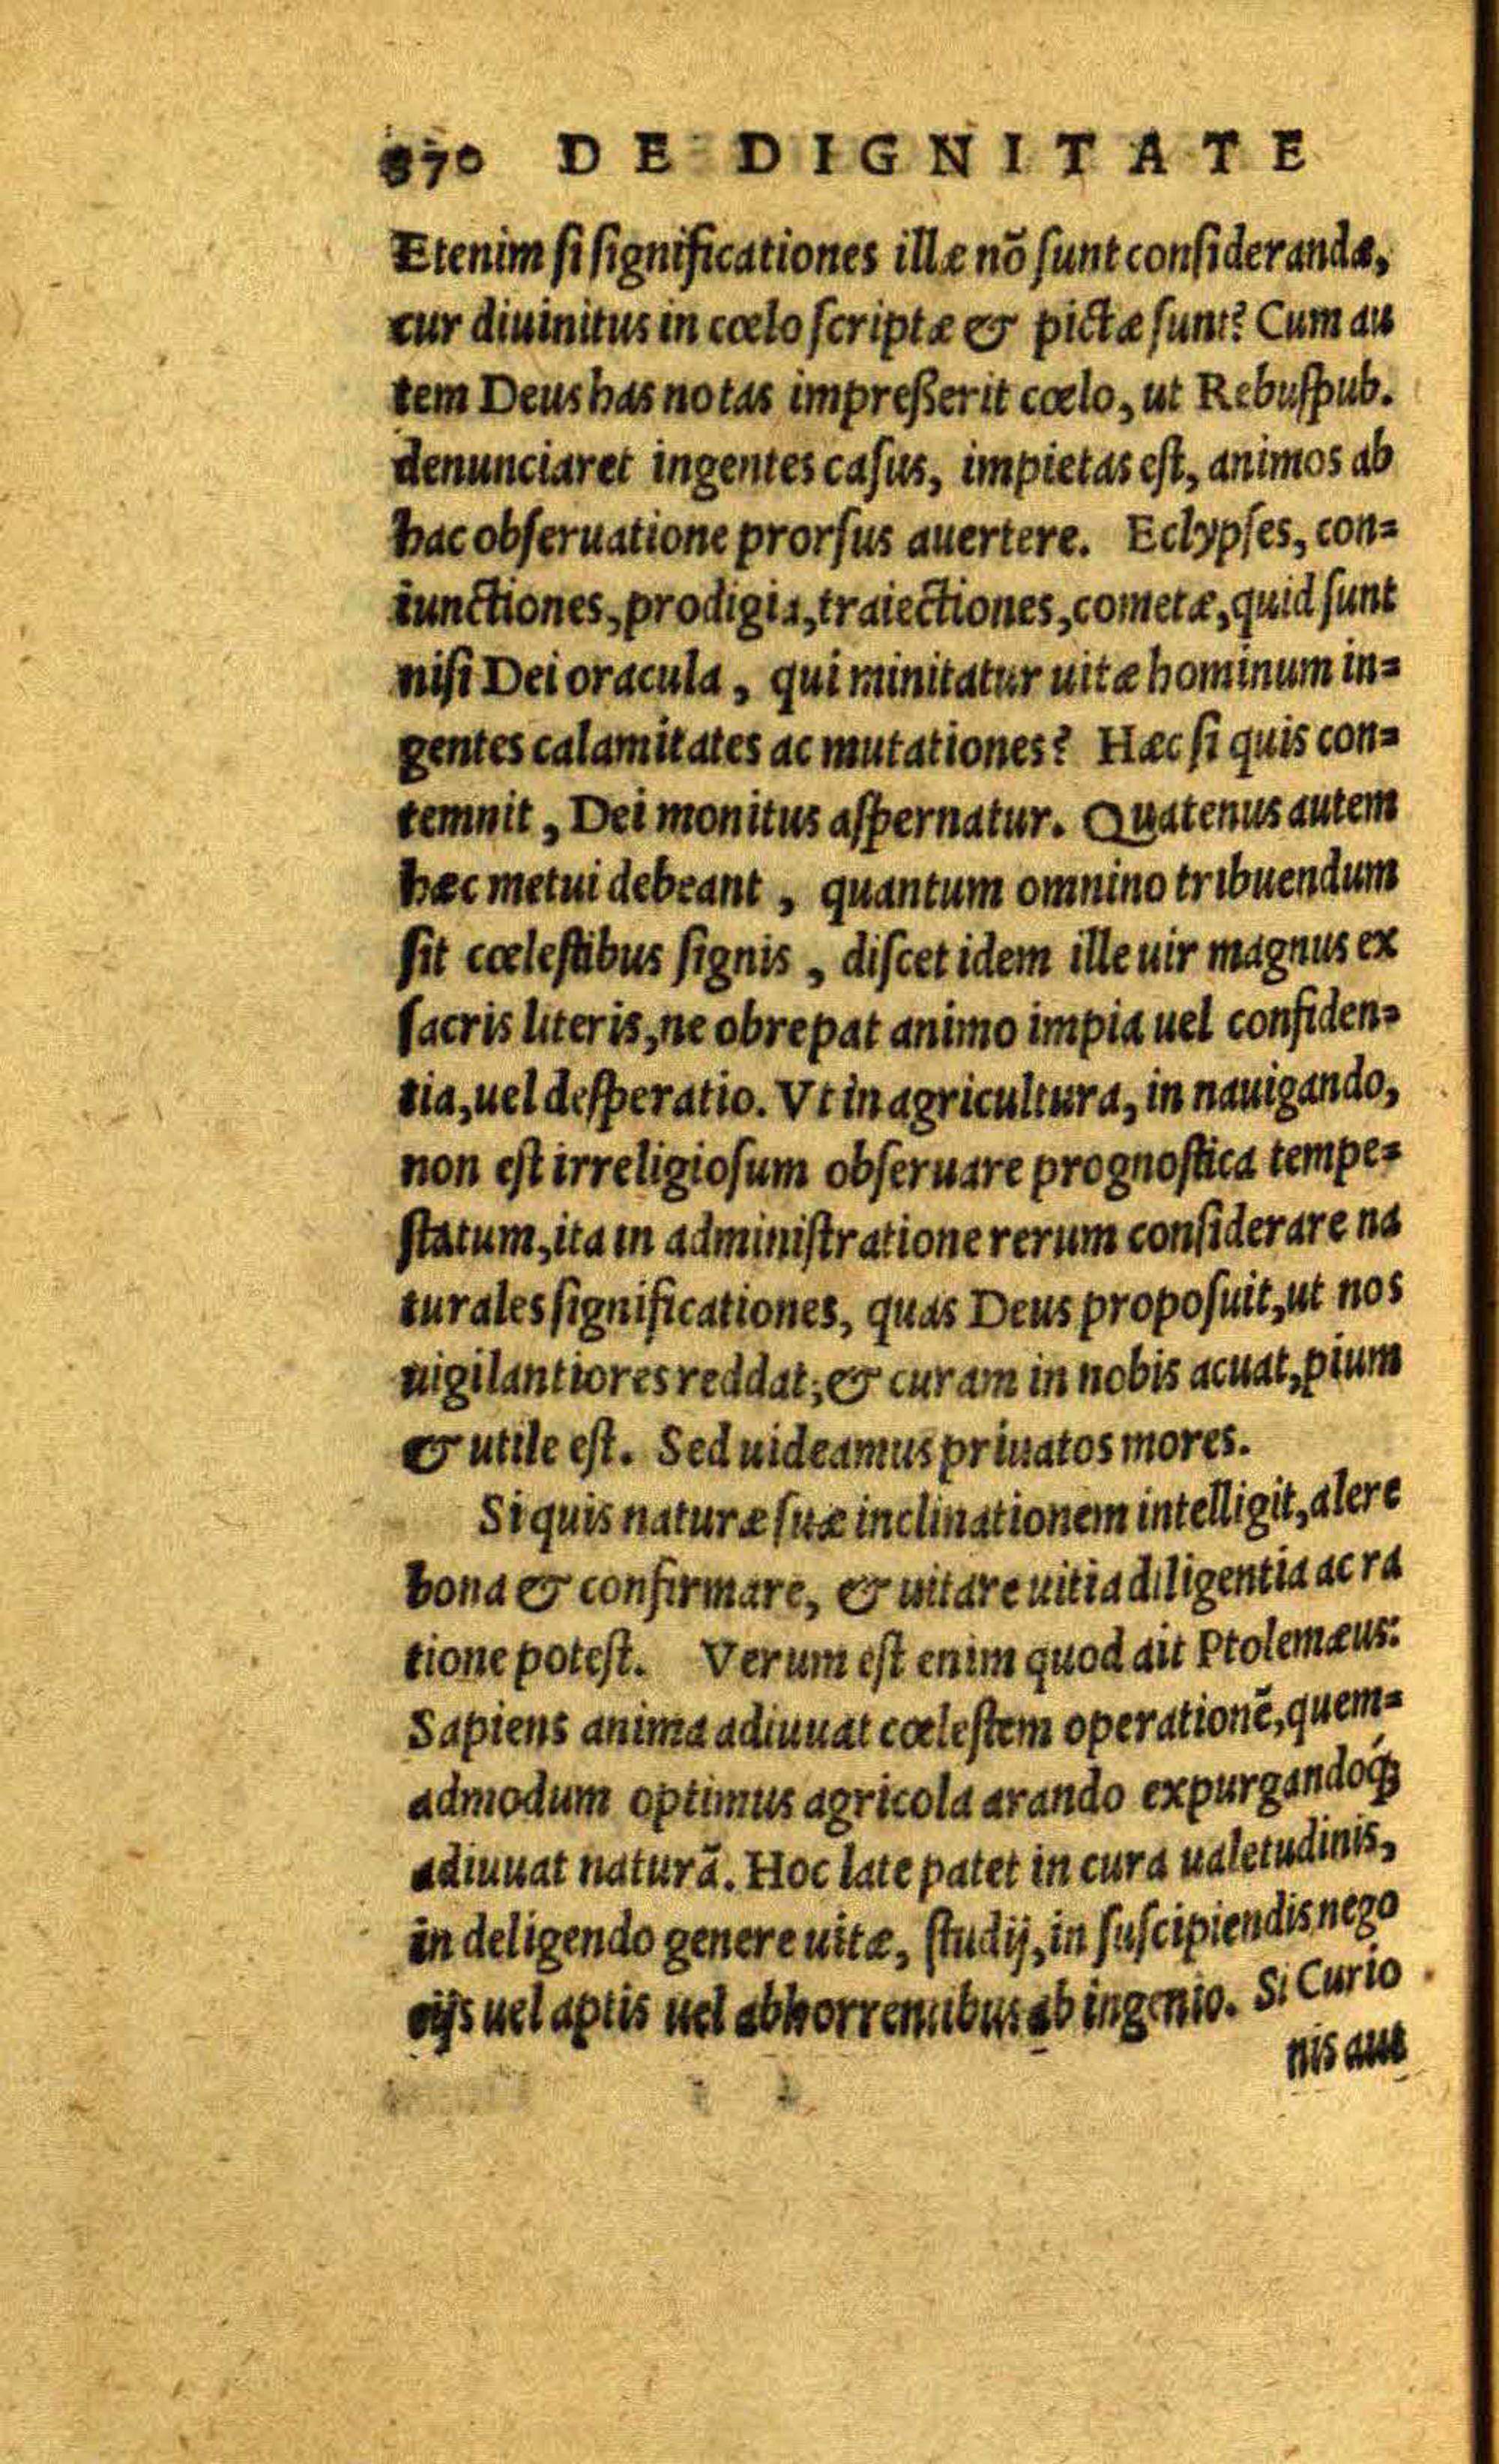 870 DE DIGNITATE
Etenim si significationes illæ nõ sunt considerandæ,
cur diuinitus in cœlo scriptæ & pictæ sunt? Cum au
tem Deus has notas impreßerit cœlo, ut Rebuspub.
denunciaret ingentes casus, impietas est, animos ab
hac obseruatione prorsus auertere. Eclypses, con=
iunctiones, prodigia, traiectiones, cometæ, quid sunt
nisi Dei oracula, qui minitatur uitæ hominum in=
gentes calamitates ac mutationes? Hæc si quis con=
temnit, Dei monitus aspernatur. Quatenus autem
hæc metui debeant, quantum omnino tribuendum
sit cœlestibus signis, discet idem ille uir magnus ex
sacris literis, ne obrepat animo impia uel confiden=
tia, uel desperatio. Vt in agricultura, in nauigando,
non est irreligiosum obseruare prognostica tempe=
statum, ita in administratione rerum considerare na
turales significationes, quas Deus proposuit, ut nos
uigilantiores reddat, & curam in nobis acuat, pium
& utile est. Sed uideamus priuatos mores.
Si quis naturæ suæ inclinationem intelligit, alere
bona & confirmare, & uitare uitia diligentia ac ra
tione potest. Verum est enim quod ait Ptolemæus:
Sapiens anima adiuuat cœlestem operationẽ, quem=
admodum optimus agricola arando expurgandoq́;
adiuuat naturã. Hoc late patet in cura ualetudinis,
in deligendo genere uitæ, studij, in suscipiendis nego
cijs uel aptis uel abhorrentibus ab ingenio. Si Curio
nis aut